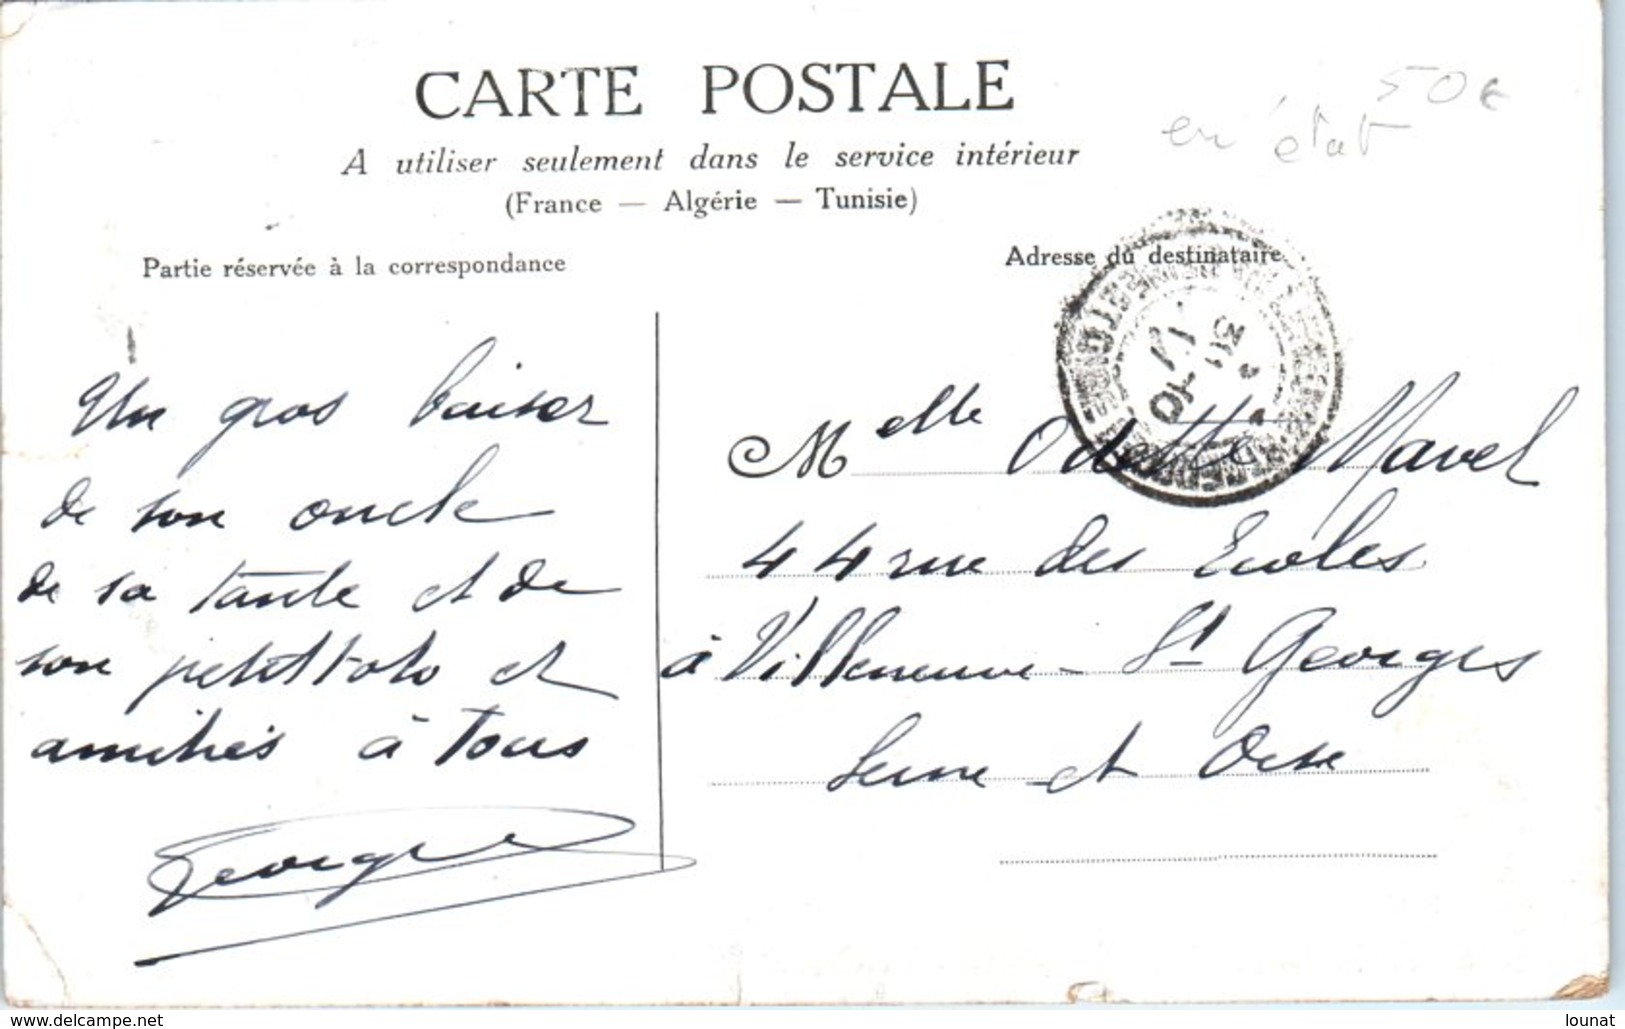 CARTE POSTALE
50€
en état
A utiliser seulement dans le service intérieur
(France — Algérie — Tunisie)
Partie réservée à la correspondance
Adresse du destinataire
Un gros baiser
de son oncle
de sa tante et de
son petit toto et
amitiés à tous
Georges
Melle Odette Mavel
44 rue des Ecoles
à Villeneuve - St Georges
Seine et Oise
www.delcampe.net
lounat